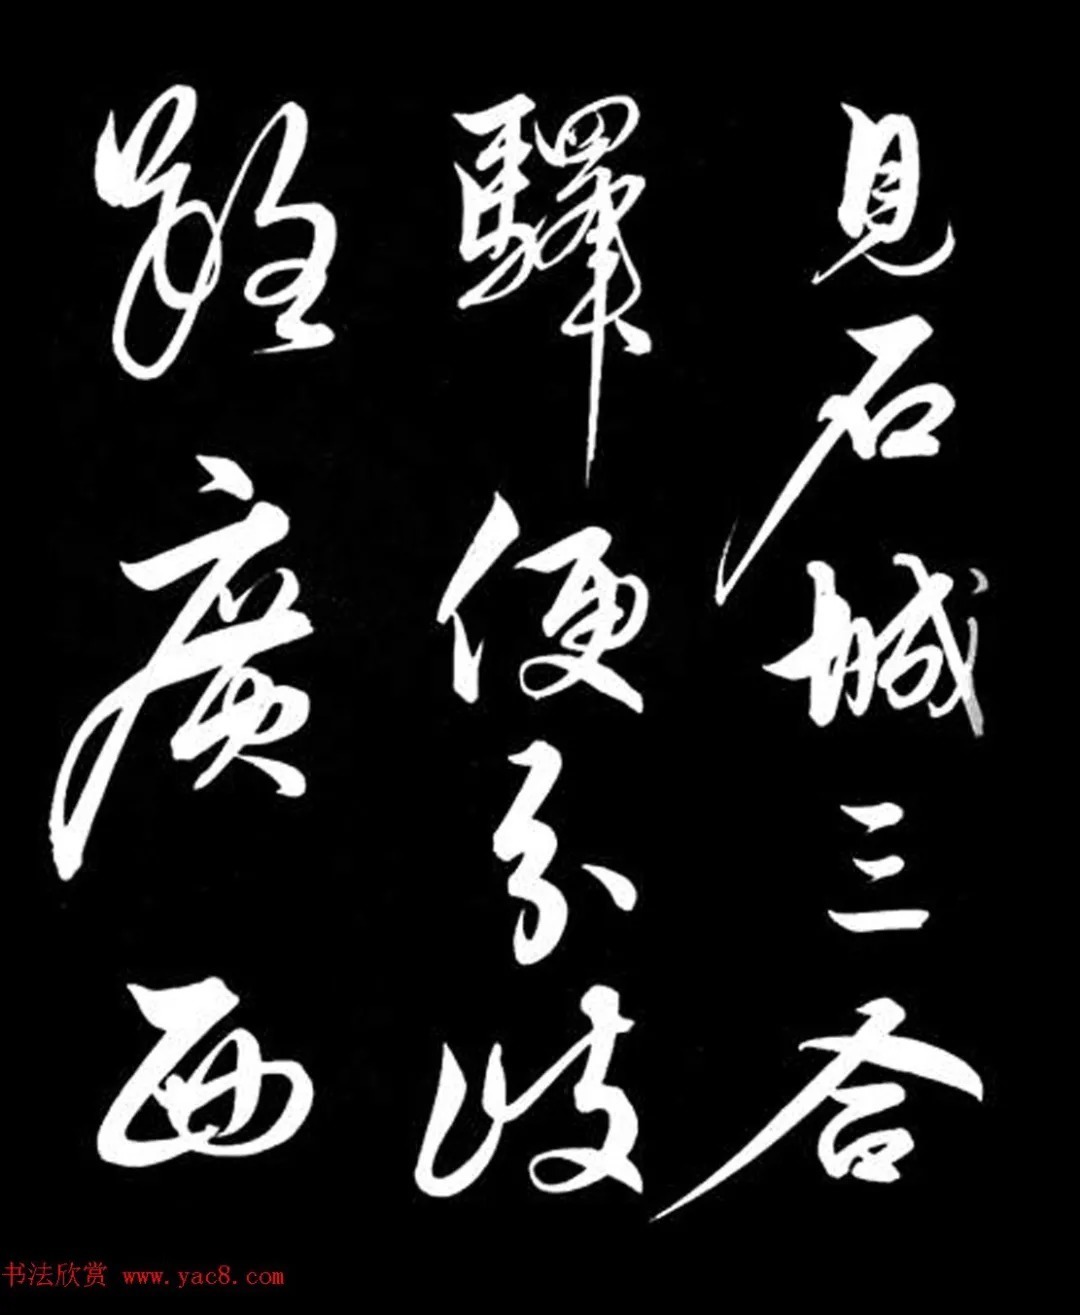 見石城三合
驛便分岐
路廣西
书法欣赏 www.yac8.com